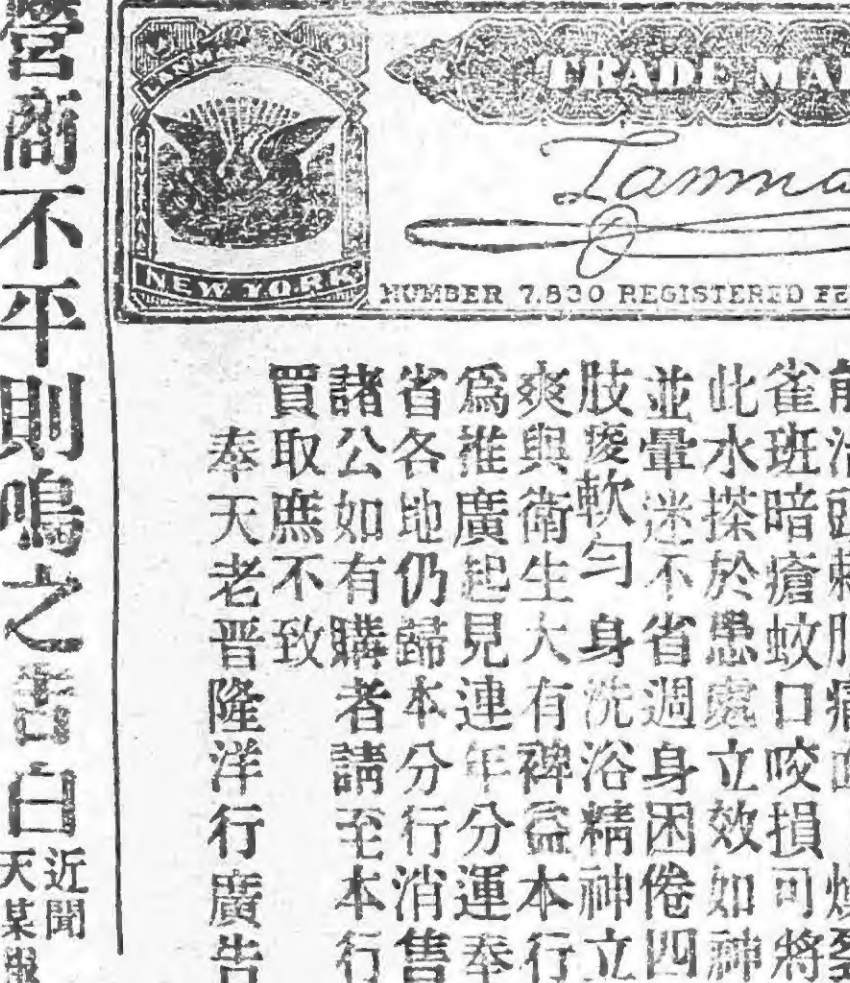 TRADE MA
Lanma
LANM KEM
NEW YORK
NUMBER 7.800 REGISTERED FE
雀班暗瘡蚊口咬損可將
此水搽於患處立效如神
並暈迷不省週身困倦四
肢痠軟匀身洗浴精神立
爽與衛生大有裨益本行
為推廣起見連年分運奉
省各地仍歸本分行消售
諸公如有購者請至本行
買取庶不致
奉天老晋隆洋行廣告
營商不平則鳴之告白
近聞
天某報